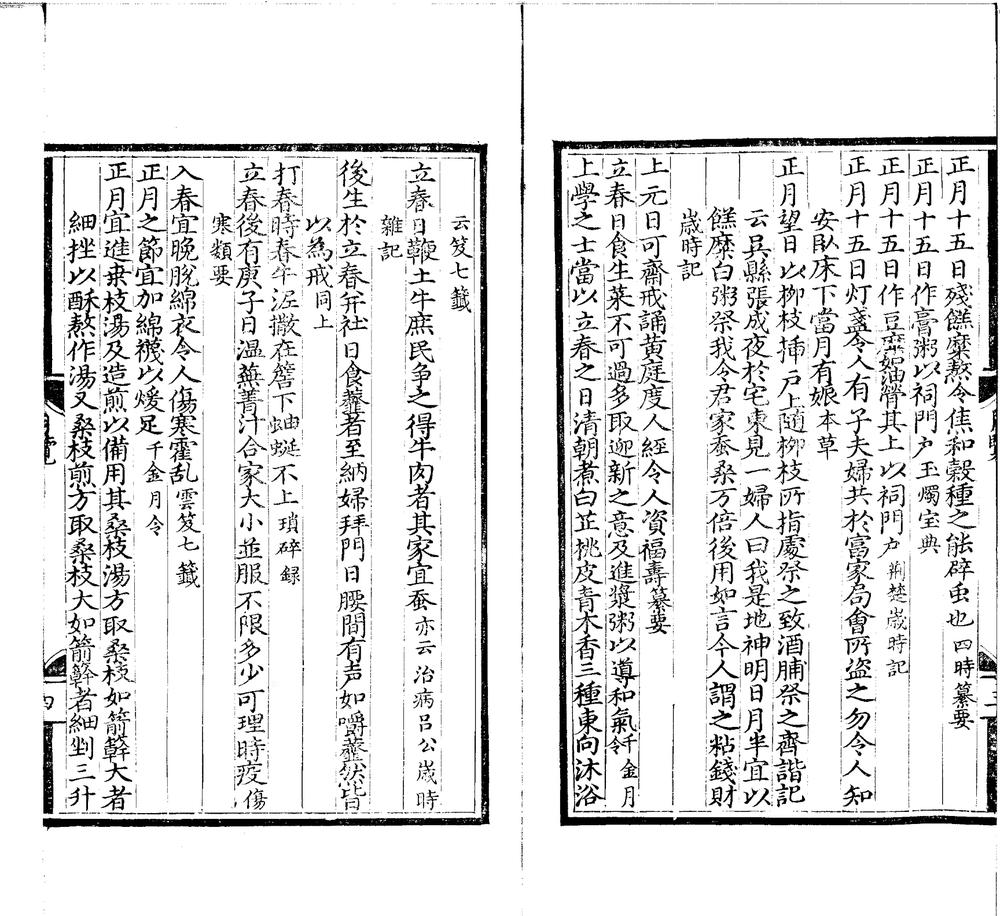 正月十五日殘餻糜熬令焦和穀種之能辟虫也四時纂要
正月十五日作膏粥以祠門户玉燭宝典
正月十五日作豆糜加油膏其上以祠門户荆楚嵗時記
正月十五日灯盞令人有子夫婦共於富家局會所盗之勿令人知
安卧床下當月有娠本草
正月望日以柳枝揷戸上随柳枝所指處祭之致酒脯祭之齊諧記
云吴縣張成夜於宅東見一婦人曰我是地神明日月半宜以
餻糜白粥祭我令君家蚕桑万倍後用如言今人謂之粘錢財
嵗時記
上元日可齋戒誦黄庭度人經令人資福壽纂要
立春日食生菜不可過多取迎新之意及進漿粥以導和氣千金月令
上學之士當以立春之日清朝煮白芷桃皮青木香三種東向沐浴
云笈七籤
立春日鞭土牛庶民争之得牛肉者其家宜蚕亦云治病吕公嵗時
雜記
後生於立春并社日食虀者至納婦拜門日腰間有声如嚼虀然皆
以為戒同上
打春時春牛泥撒在簷下蚰蜒不上瑣碎録
立春後有庚子日温蕪菁汁合家大小並服不限多少可理時疫傷
寒類要
入春宜晚脱綿衣令人傷寒霍乱雲笈七籤
正月之節宜加綿襪以煖足千金月令
正月宜進桑枝湯及造煎以備用其桑枝湯方取桑枝如箭簳大者
細挫以酥熬作湯又桑枝煎方取桑枝大如箭簳者細剉三升
四